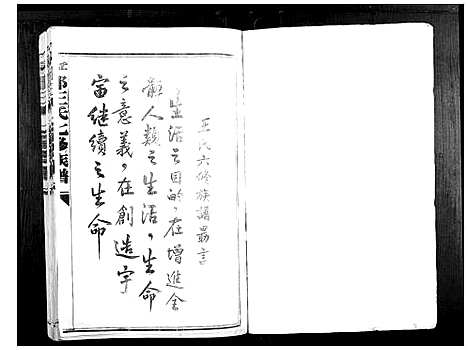 王氏六修族譜弁言
生活之目的，在增進全
體人類之生活，生命
之意義，在創造宇
宙繼續之生命
王氏六修族譜